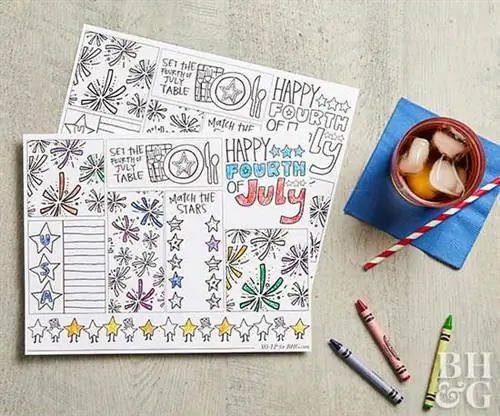 SET THE
FOURTH OF
JULY
TABLE
HAPPY
FOURTH
OF
Match the
SET THE
FOURTH OF
JULY
TABLE
HAPPY
FOURTH
OF JULY
Match the
STARS
U
S
A
BH
&G